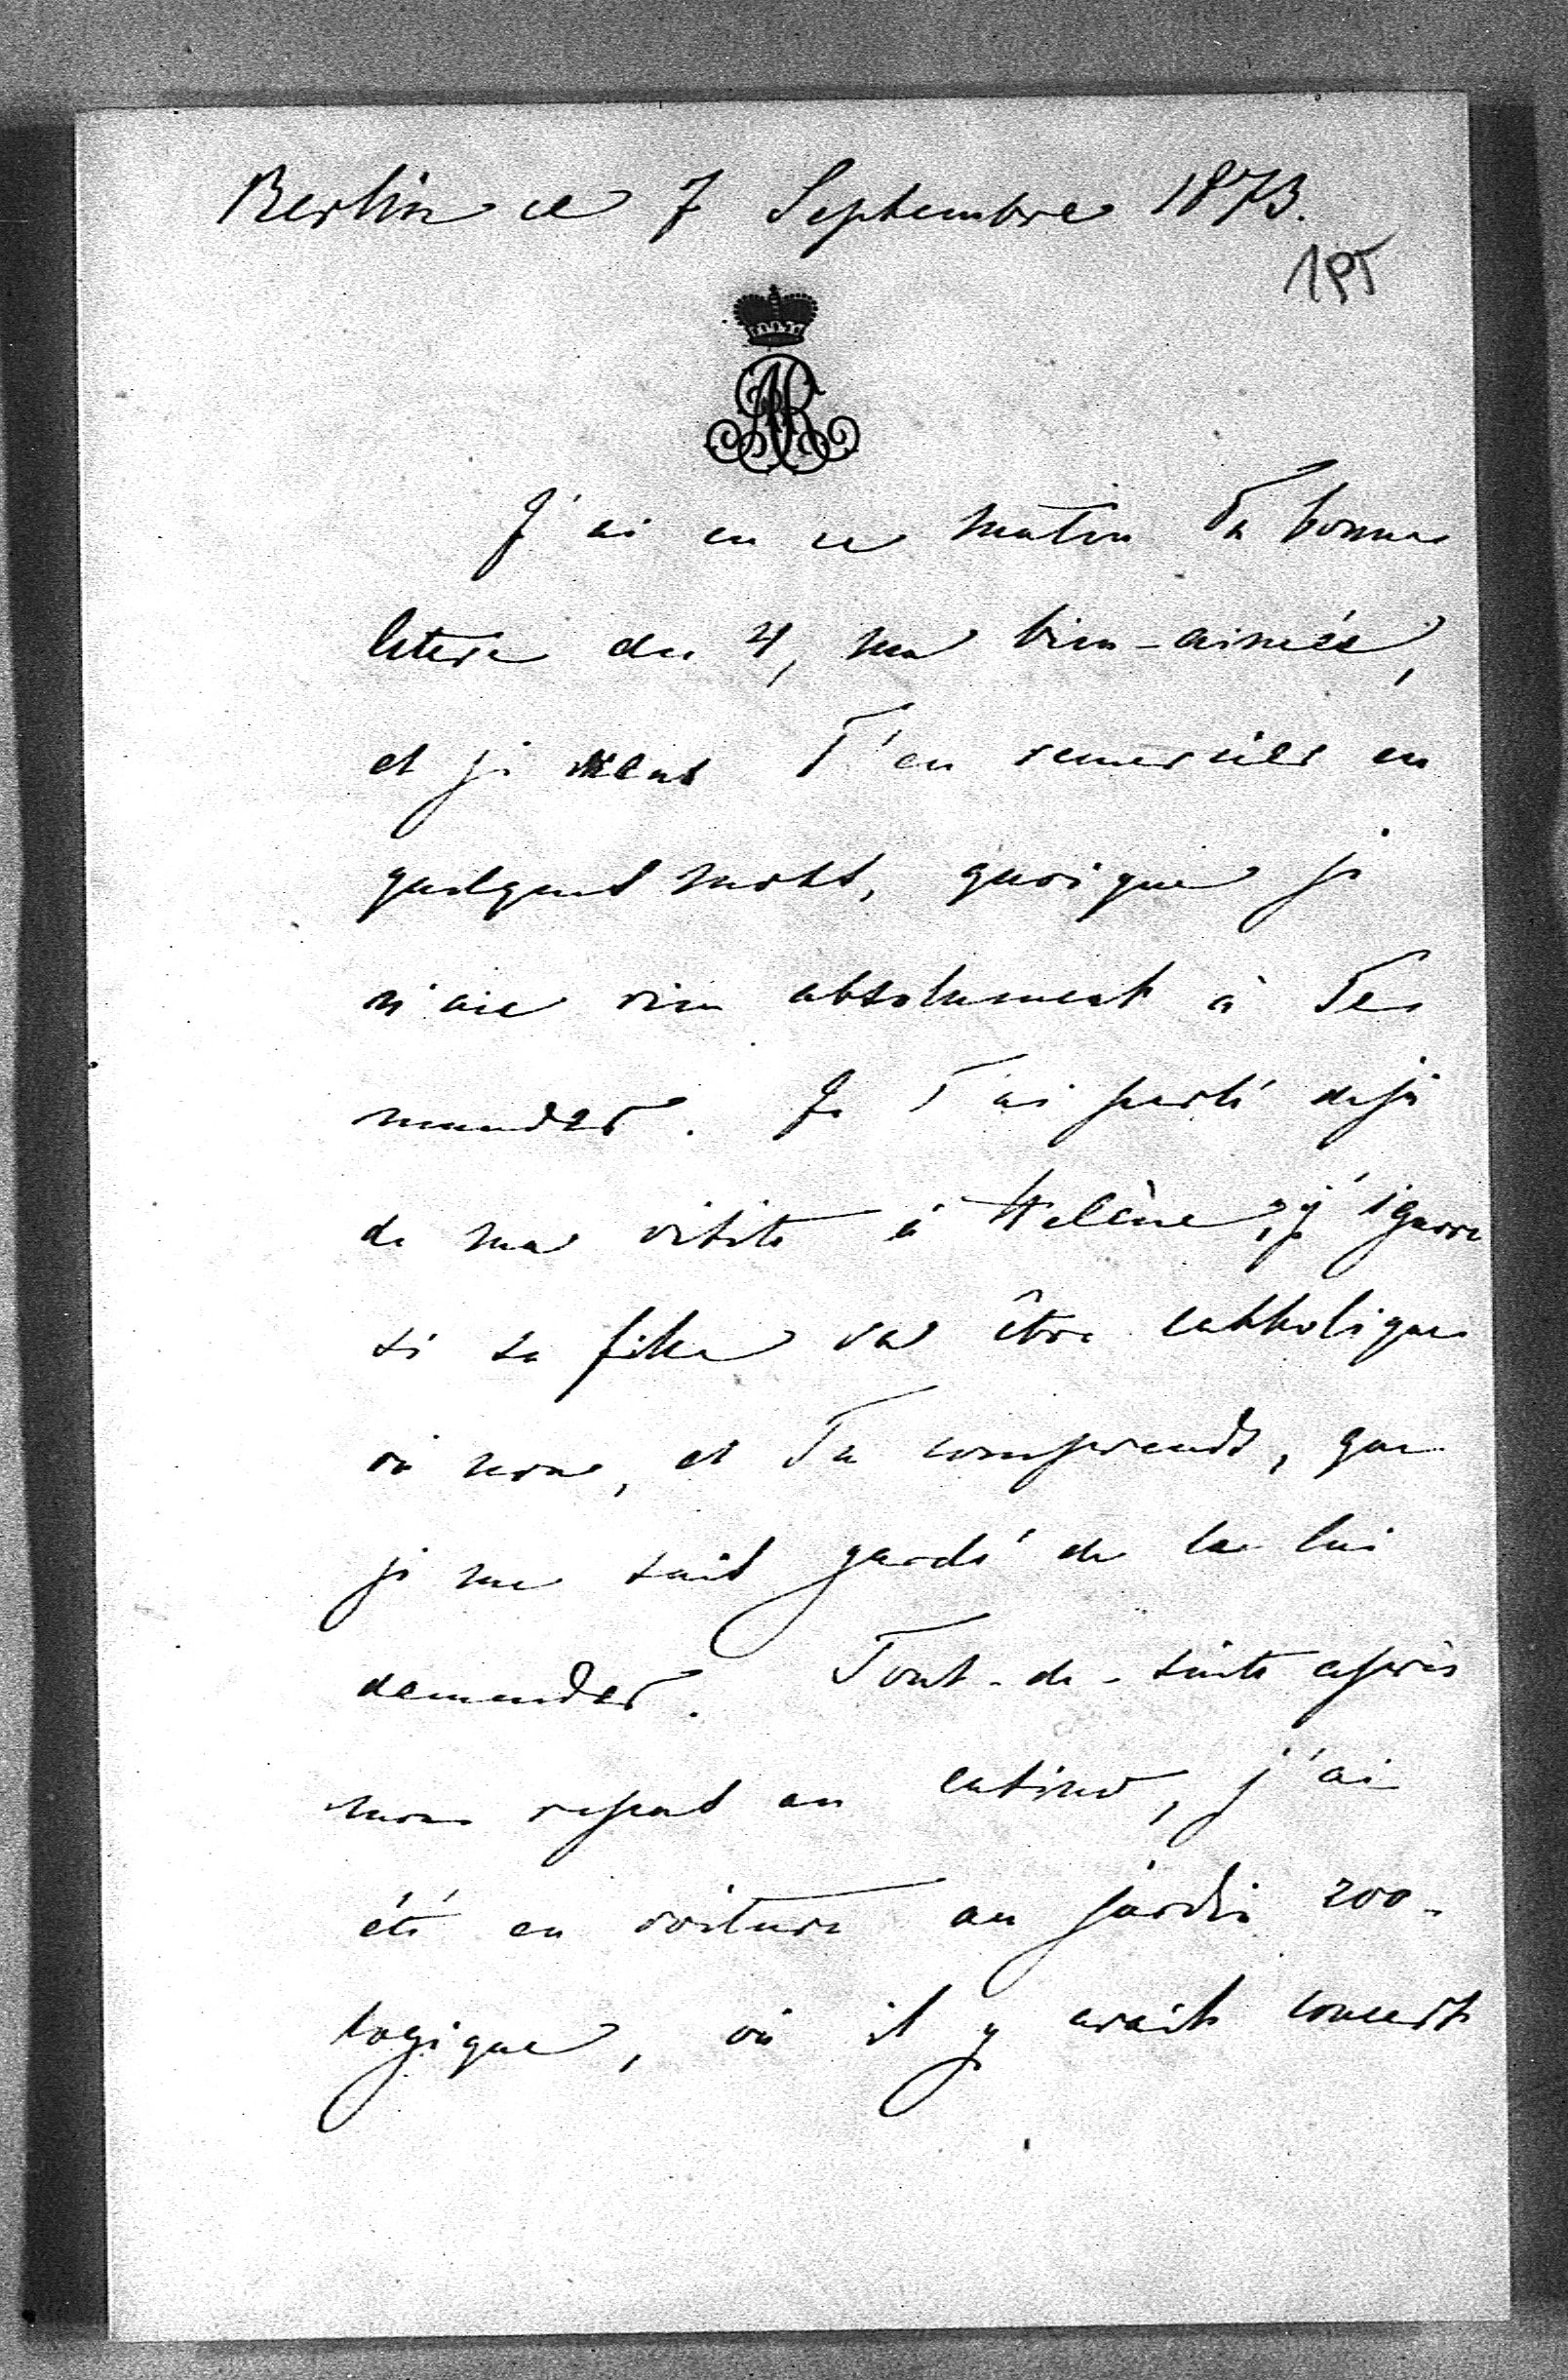 Berlin ce 7 Septembre 1873.
195
AR
J'ai eu ce matin Ta bonne
lettre du 4, ma bien-aimée,
et je veux T'en remercier en
quelques mots, quoique je
n'aie rien absolument à Te
mander. Je T'ai parlé déjà
de ma visite à Helène; j'ignore
si sa fille va être catholique
où non, et Tu comprends, que
je me suis gardé de le lui
demander. Tout-de-suite après
mon repas au casino, j'ai
été en voiture au jardin zoo-
logique, où il y avait concert